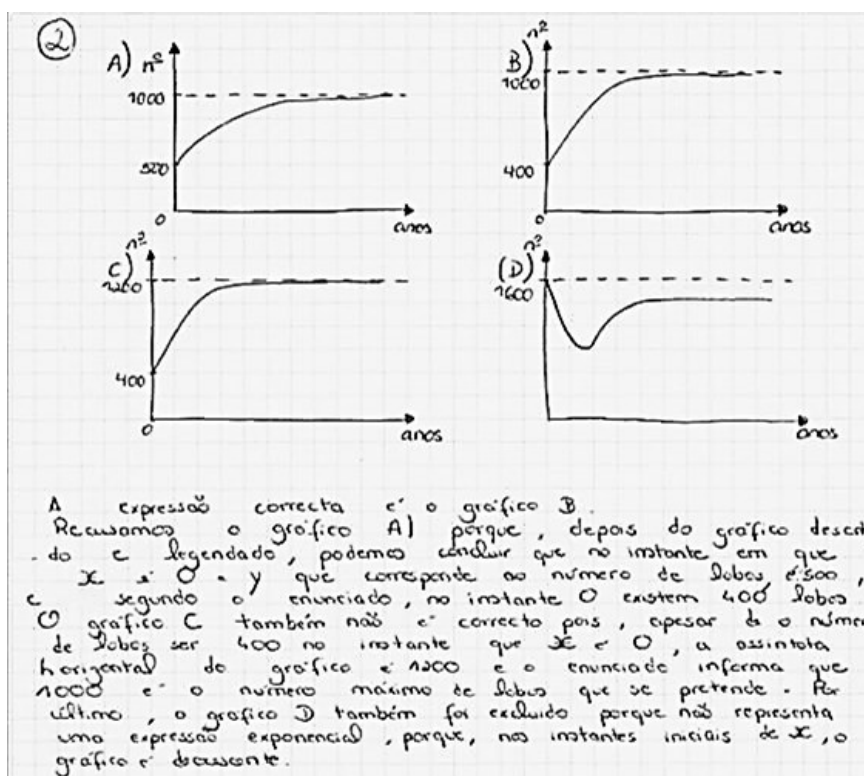 2
A) nº
1000
500
0
anos
B) nº
1000
400
0
anos
C) nº
1200
400
0
anos
(D) nº
1600
anos
A expressão correcta é o gráfico B.
Recusamos o gráfico A) porque, depois do gráfico
do e legendado, podemos concluir que no instante em que
x é 0 y que corresponde ao número de lobos é 500,
e segundo o enunciado, no instante 0 existem 400 lobos.
O gráfico C também não é correcto pois, apesar de o núme
de lobos ser 400 no instante que x é 0, a assintota
horizontal do gráfico é 1200 e o enunciado informa que
1000 é o número máximo de lobos que se pretende. Por
último, o gráfico D também foi excluido porque não representa
uma expressão exponencial, porque, nos instantes iniciais de x, o
gráfico é decrescente.